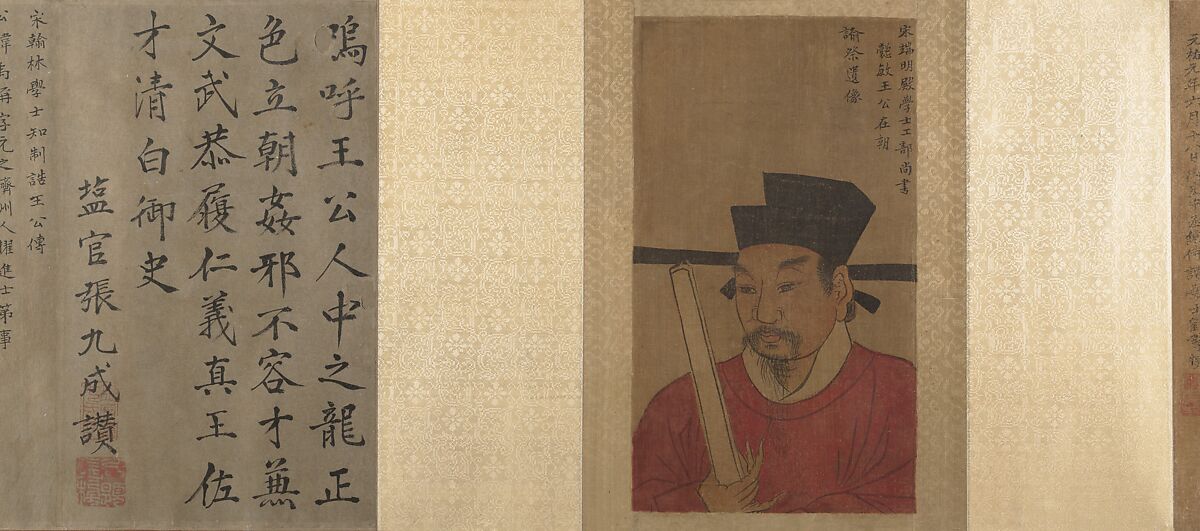 元祐元年六月
宋端明殿學士工部尚書
懿敏王公在朝
諭祭遺像
嗚呼王公人中之龍正
色立朝姦邪不容才兼
文武恭履仁義真王佐
才清白御史
塩官張九成讃
宋翰林學士知制誥王公傳
公諱禹偁字元之濟州人擢進士第事